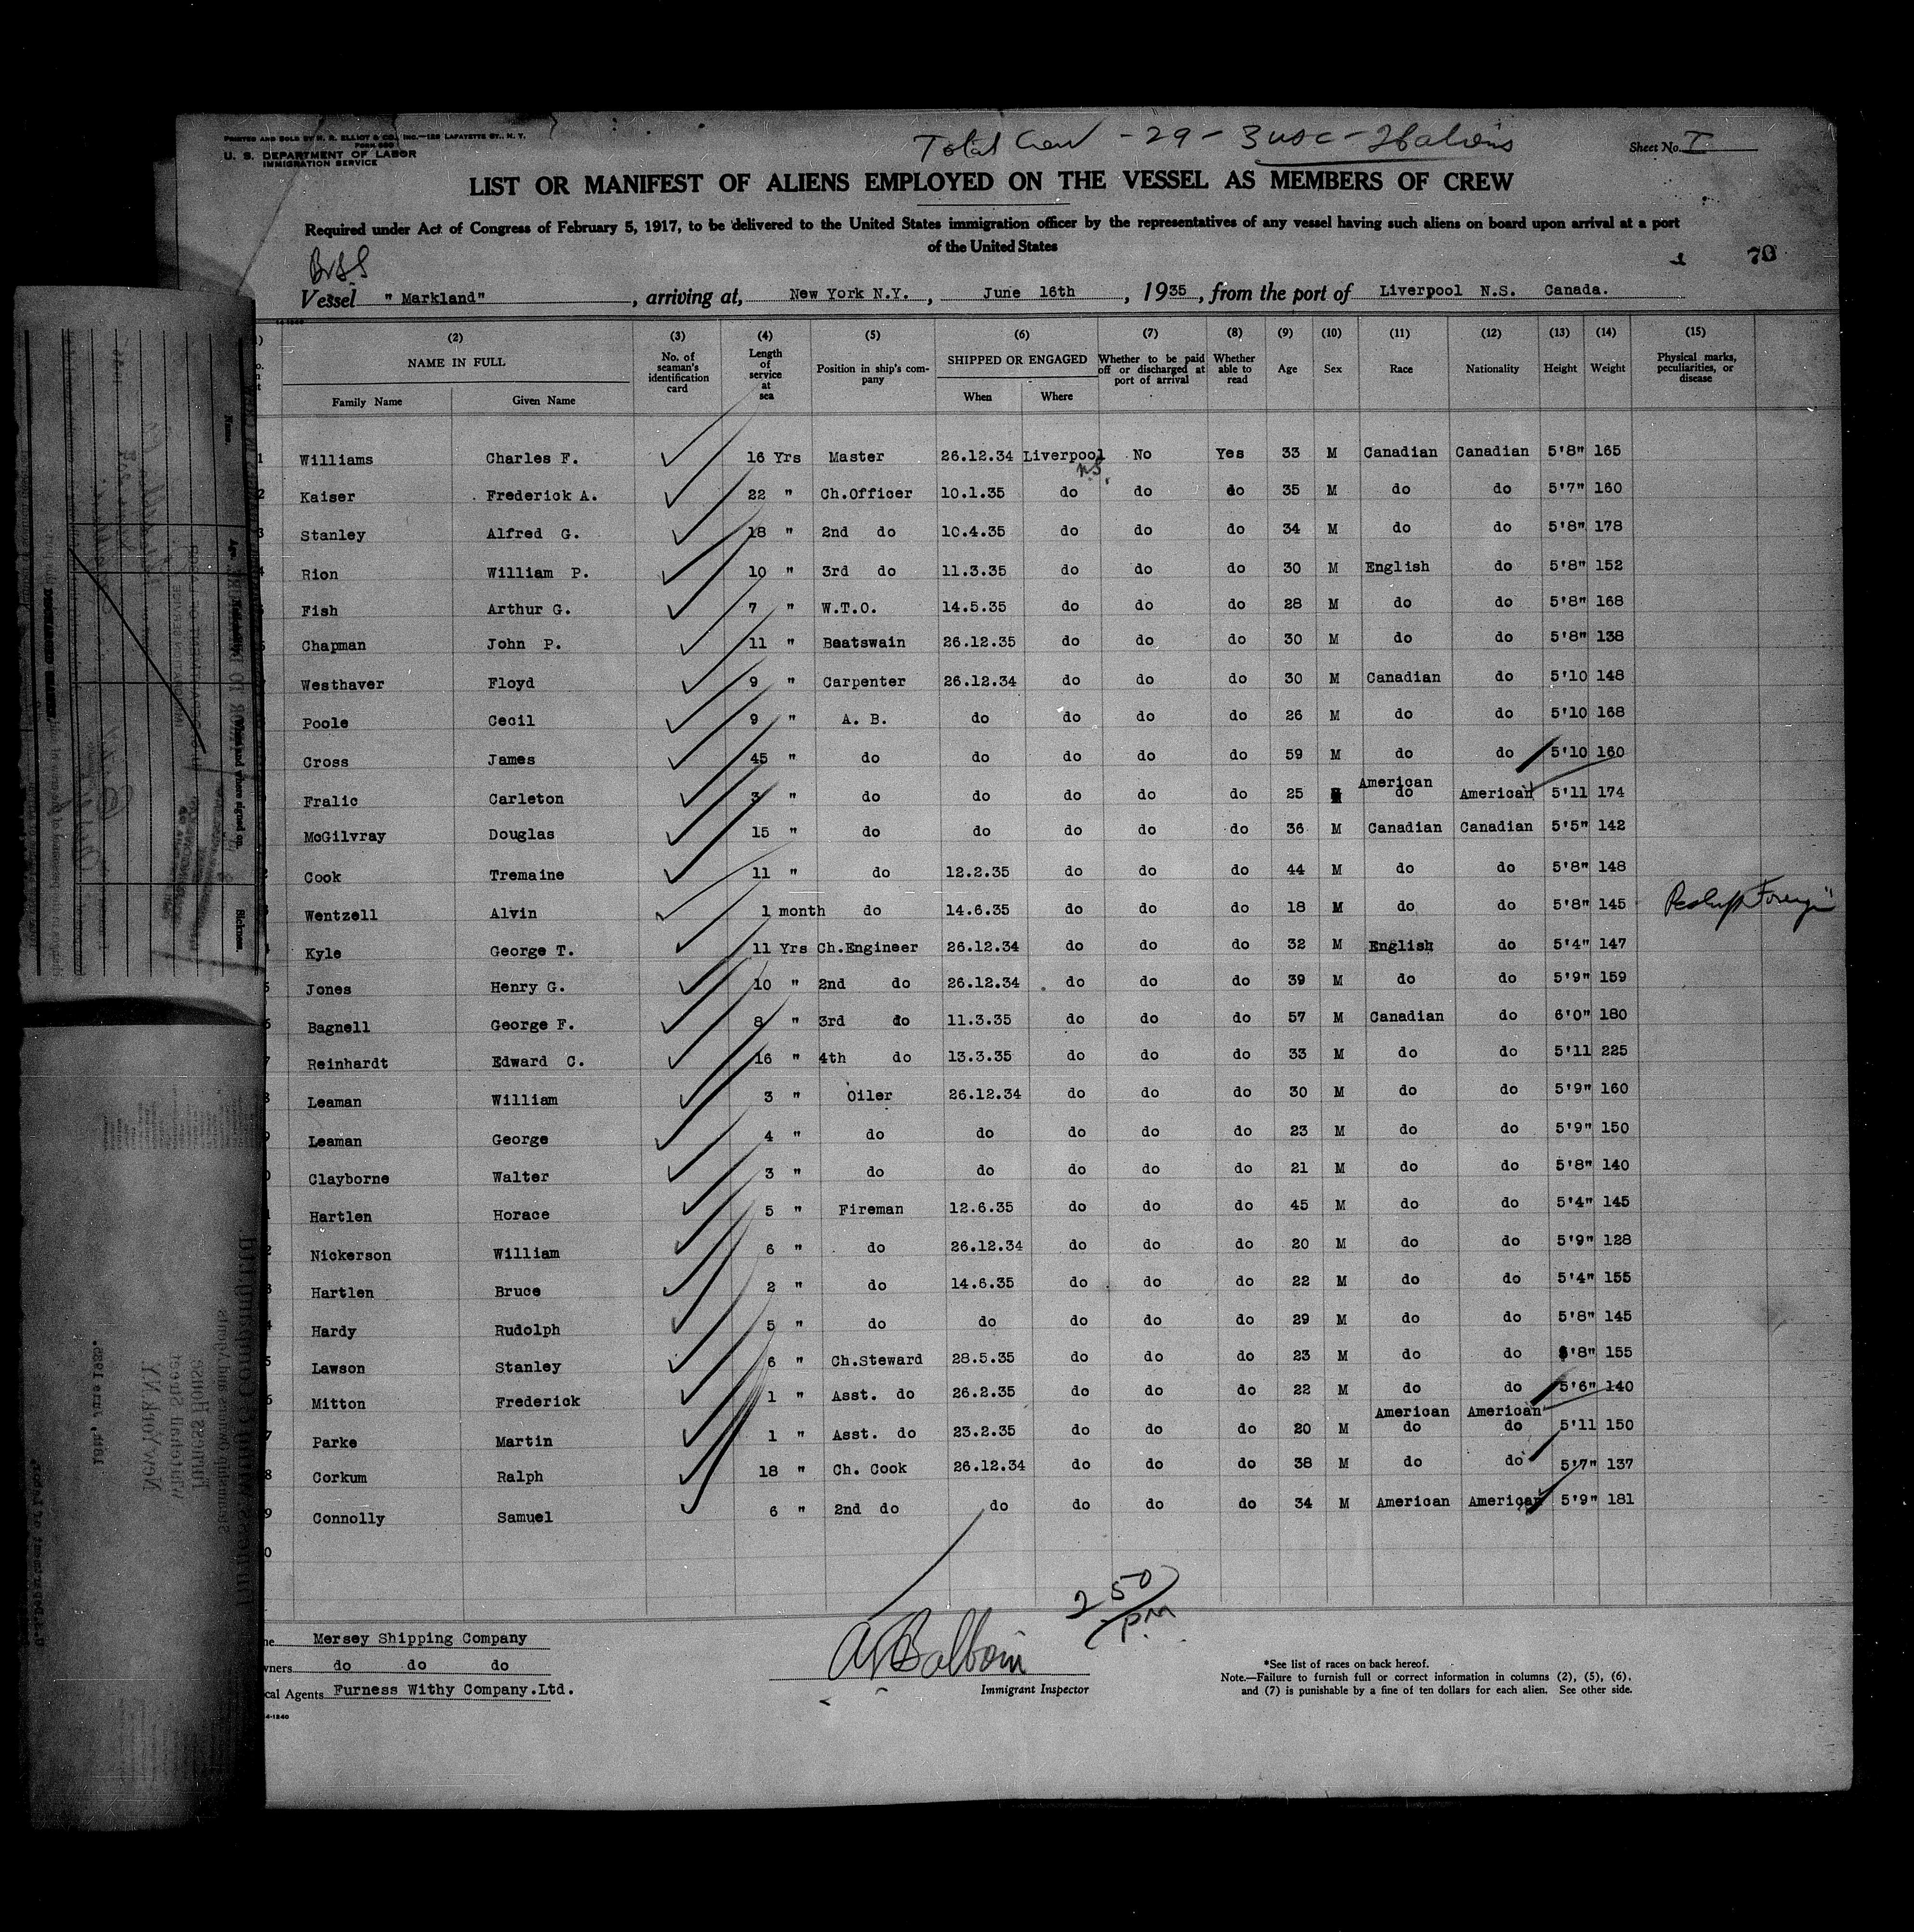 PRINTED AND SOLD BY H. R. ELLIOT & CO., INC.—129 LAFAYETTE ST., N. Y.
U. S. DEPARTMENT OF LABOR
IMMIGRATION SERVICE
Total Crew - 29 - 3 USC -
Sheet No. I
LIST OR MANIFEST OF ALIENS EMPLOYED ON THE VESSEL AS MEMBERS OF CREW
Required under Act of Congress of February 5, 1917, to be delivered to the United States immigration officer by the representatives of any vessel having such aliens on board upon arrival at a port
of the United States
Vessel " Markland" , arriving at, New York N.Y. , June 16th , 1935 , from the port of Liverpool N.S. Canada.
(2) (3) (4) (5) (6) (7) (8) (9) (10) (11) (12) (13) (14) (15)
NAME IN FULL No. of seaman's identification card Length of service at sea Position in ship's company SHIPPED OR ENGAGED Whether to be paid off or discharged at port of arrival Whether able to read Age Sex Race Nationality Height Weight Physical marks, peculiarities, or disease
Family Name Given Name When Where
1 Williams Charles F. 16 Yrs Master 26.12.34 Liverpool N.S. No Yes 33 M Canadian Canadian 5'8" 165
2 Kaiser Frederick A. 22 " Ch.Officer 10.1.35 do do do 35 M do do 5'7" 160
3 Stanley Alfred G. 18 " 2nd do 10.4.35 do do do 34 M do do 5'8" 178
4 Rion William P. 10 " 3rd do 11.3.35 do do do 30 M English do 5'8" 152
Fish Arthur G. 7 " W.T.O. 14.5.35 do do do 28 M do do 5'8" 168
Chapman John P. 11 " Beatswain 26.12.35 do do do 30 M do do 5'8" 138
Westhaver Floyd 9 " Carpenter 26.12.34 do do do 30 M Canadian do 5'10 148
Poole Cecil 9 " A. B. do do do do 26 M do do 5'10 168
Cross James 45 " do do do do do 59 M do do 5'10 160
Fralic Carleton 3 " do do do do do 25 M American do American 5'11 174
McGilvray Douglas 15 " do do do do do 36 M Canadian Canadian 5'5" 142
2 Cook Tremaine 11 " do 12.2.35 do do do 44 M do do 5'8" 148
Wentzell Alvin 1 month do 14.6.35 do do do 18 M do do 5'8" 145
4 Kyle George T. 11 Yrs Ch.Engineer 26.12.34 do do do 32 M English do 5'4" 147
5 Jones Henry G. 10 " 2nd do 26.12.34 do do do 39 M do do 5'9" 159
6 Bagnell George F. 8 " 3rd do 11.3.35 do do do 57 M Canadian do 6'0" 180
7 Reinhardt Edward C. 16 " 4th do 13.3.35 do do do 33 M do do 5'11 225
8 Leaman William 3 " Oiler 26.12.34 do do do 30 M do do 5'9" 160
9 Leaman George 4 " do do do do do 23 M do do 5'9" 150
0 Clayborne Walter 3 " do do do do do 21 M do do 5'8" 140
1 Hartlen Horace 5 " Fireman 12.6.35 do do do 45 M do do 5'4" 145
2 Nickerson William 6 " do 26.12.34 do do do 20 M do do 5'9" 128
3 Hartlen Bruce 2 " do 14.6.35 do do do 22 M do do 5'4" 155
4 Hardy Rudolph 5 " do do do do do 29 M do do 5'8" 145
5 Lawson Stanley 6 " Ch.Steward 28.5.35 do do do 23 M do do 5'8" 155
6 Mitton Frederick 1 " Asst. do 26.2.35 do do do 22 M do do 5'6" 140
7 Parke Martin 1 " Asst. do 23.2.35 do do do 20 M American do American do 5'11 150
8 Corkum Ralph 18 " Ch. Cook 26.12.34 do do do 38 M do do 5'7" 137
9 Connolly Samuel 6 " 2nd do do do do do 34 M American American 5'9" 181
0
2 50
PM
Mersey Shipping Company
do do do
Agents Furness Withy Company.Ltd.
Immigrant Inspector
*See list of races on back hereof.
Note.—Failure to furnish full or correct information in columns (2), (5), (6),
and (7) is punishable by a fine of ten dollars for each alien. See other side.